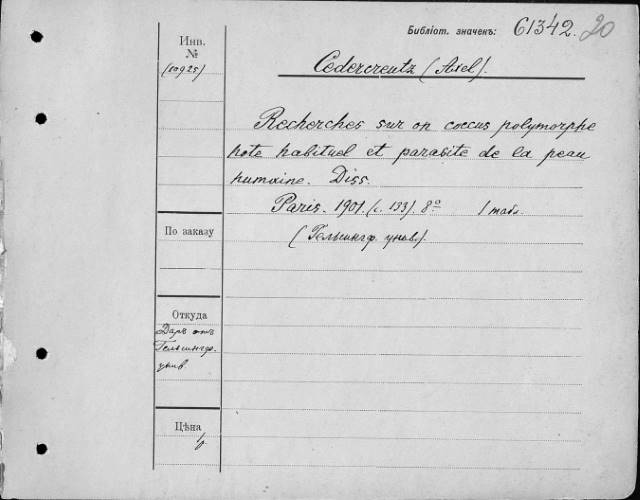 Библіот. значекъ: 61342. 20
Инв.
№
(10925)
Cedercreutz (Axel).
Recherches sur on coccus polymorphe
hote habituel et parasite de la peau
humaine. Diss.
Paris. 1901. (с. 133). 8º 1 табл.
(Гельсингф. унив.).
По заказу
Откуда
Даръ отъ
Гельсингф.
унив.
Цѣна